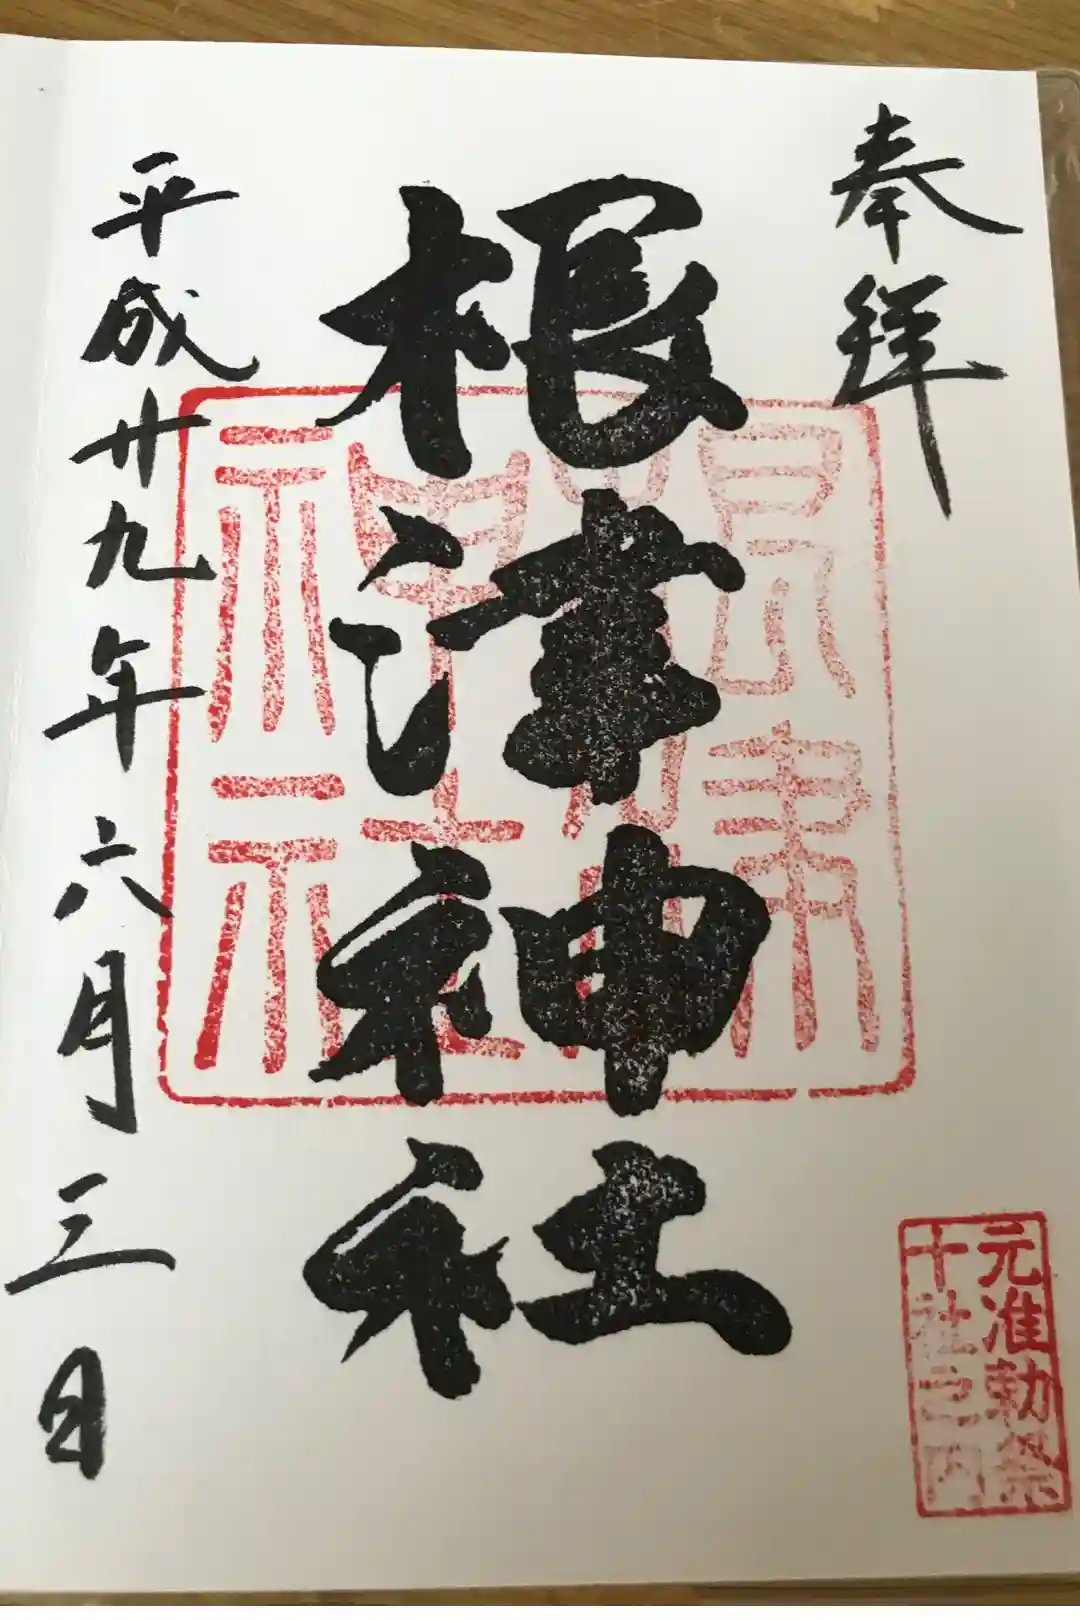 奉拝
元准勅祭
十社之内
根津神社
根津神社
平成廿九年六月三日